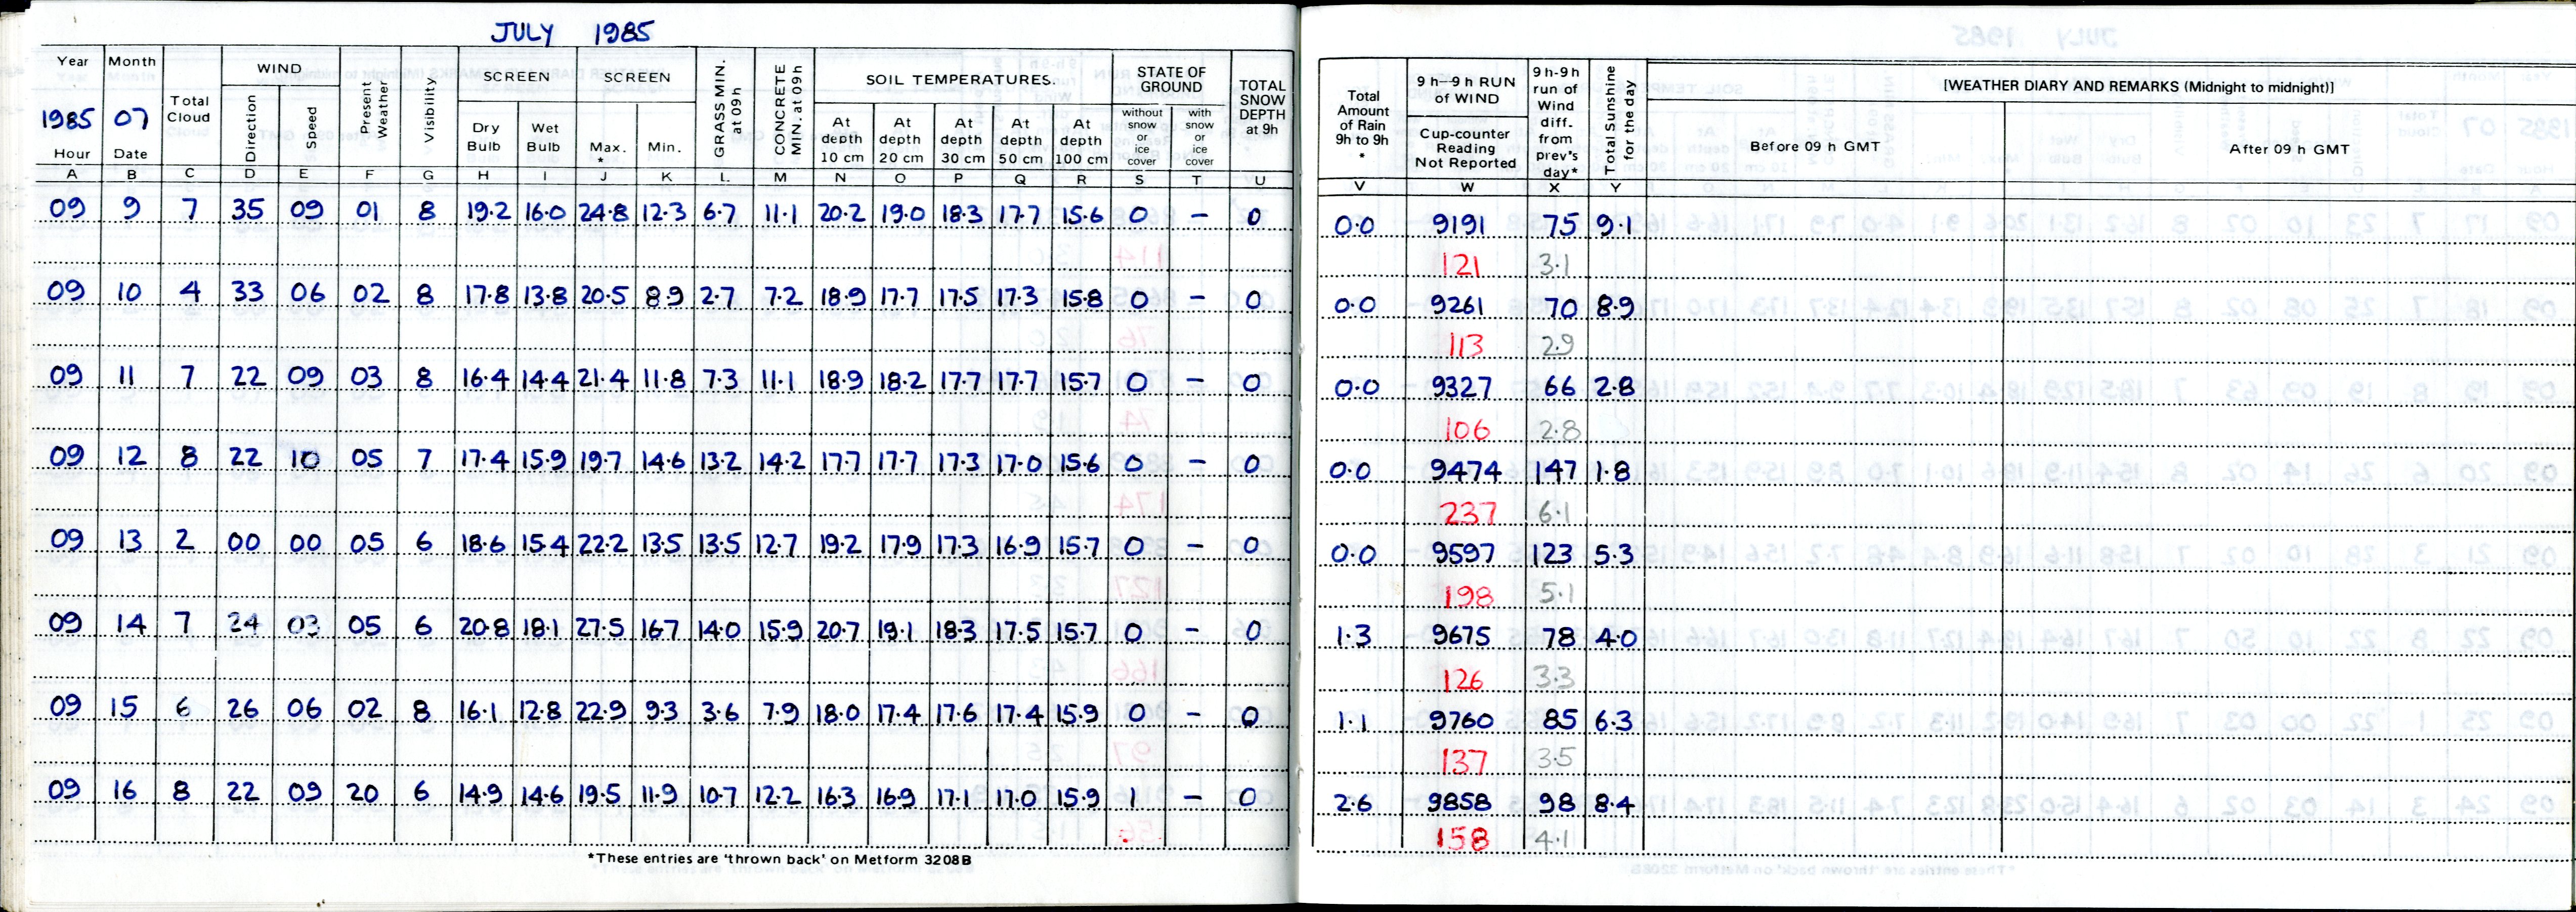 JULY 1985
Year Month
1985 07
Hour Date
Total Cloud
WIND
Direction Speed
Present Weather
Visibility
SCREEN
Dry Bulb Wet Bulb
SCREEN
Max. * Min.
GRASS MIN. at 09h
CONCRETE MIN. at 09h
SOIL TEMPERATURES.
At depth 10 cm At depth 20 cm At depth 30 cm At depth 50 cm At depth 100 cm
STATE OF GROUND
without snow or ice cover with snow or ice cover
TOTAL SNOW DEPTH at 9h
A B C D E F G H I J K L M N O P Q R S T U
09 9 7 35 09 01 8 19.2 16.0 24.8 12.3 6.7 11.1 20.2 19.0 18.3 17.7 15.6 0 – 0
09 10 4 33 06 02 8 17.8 13.8 20.5 8.9 2.7 7.2 18.9 17.7 17.5 17.3 15.8 0 – 0
09 11 7 22 09 03 8 16.4 14.4 21.4 11.8 7.3 11.1 18.9 18.2 17.7 17.7 15.7 0 – 0
09 12 8 22 10 05 7 17.4 15.9 19.7 14.6 13.2 14.2 17.7 17.7 17.3 17.0 15.6 0 – 0
09 13 2 00 00 05 6 18.6 15.4 22.2 13.5 13.5 12.7 19.2 17.9 17.3 16.9 15.7 0 – 0
09 14 7 24 03 05 6 20.8 18.1 27.5 16.7 14.0 15.9 20.7 19.1 18.3 17.5 15.7 0 – 0
09 15 6 26 06 02 8 16.1 12.8 22.9 9.3 3.6 7.9 18.0 17.4 17.6 17.4 15.9 0 – 0
09 16 8 22 09 20 6 14.9 14.6 19.5 11.9 10.7 12.2 16.3 16.9 17.1 17.0 15.9 1 – 0
*These entries are 'thrown back' on Metform 3208B
Total Amount of Rain 9h to 9h *
9 h–9 h RUN of WIND
Cup-counter Reading Not Reported
9 h-9 h run of Wind diff. from prev's day*
Total Sunshine for the day
[WEATHER DIARY AND REMARKS (Midnight to midnight)]
Before 09 h GMT After 09 h GMT
V W X Y
0.0 9191 75 9.1
121 3.1
0.0 9261 70 8.9
113 2.9
0.0 9327 66 2.8
106 2.8
0.0 9474 147 1.8
237 6.1
0.0 9597 123 5.3
198 5.1
1.3 9675 78 4.0
126 3.3
1.1 9760 85 6.3
137 3.5
2.6 9858 98 8.4
158 4.1